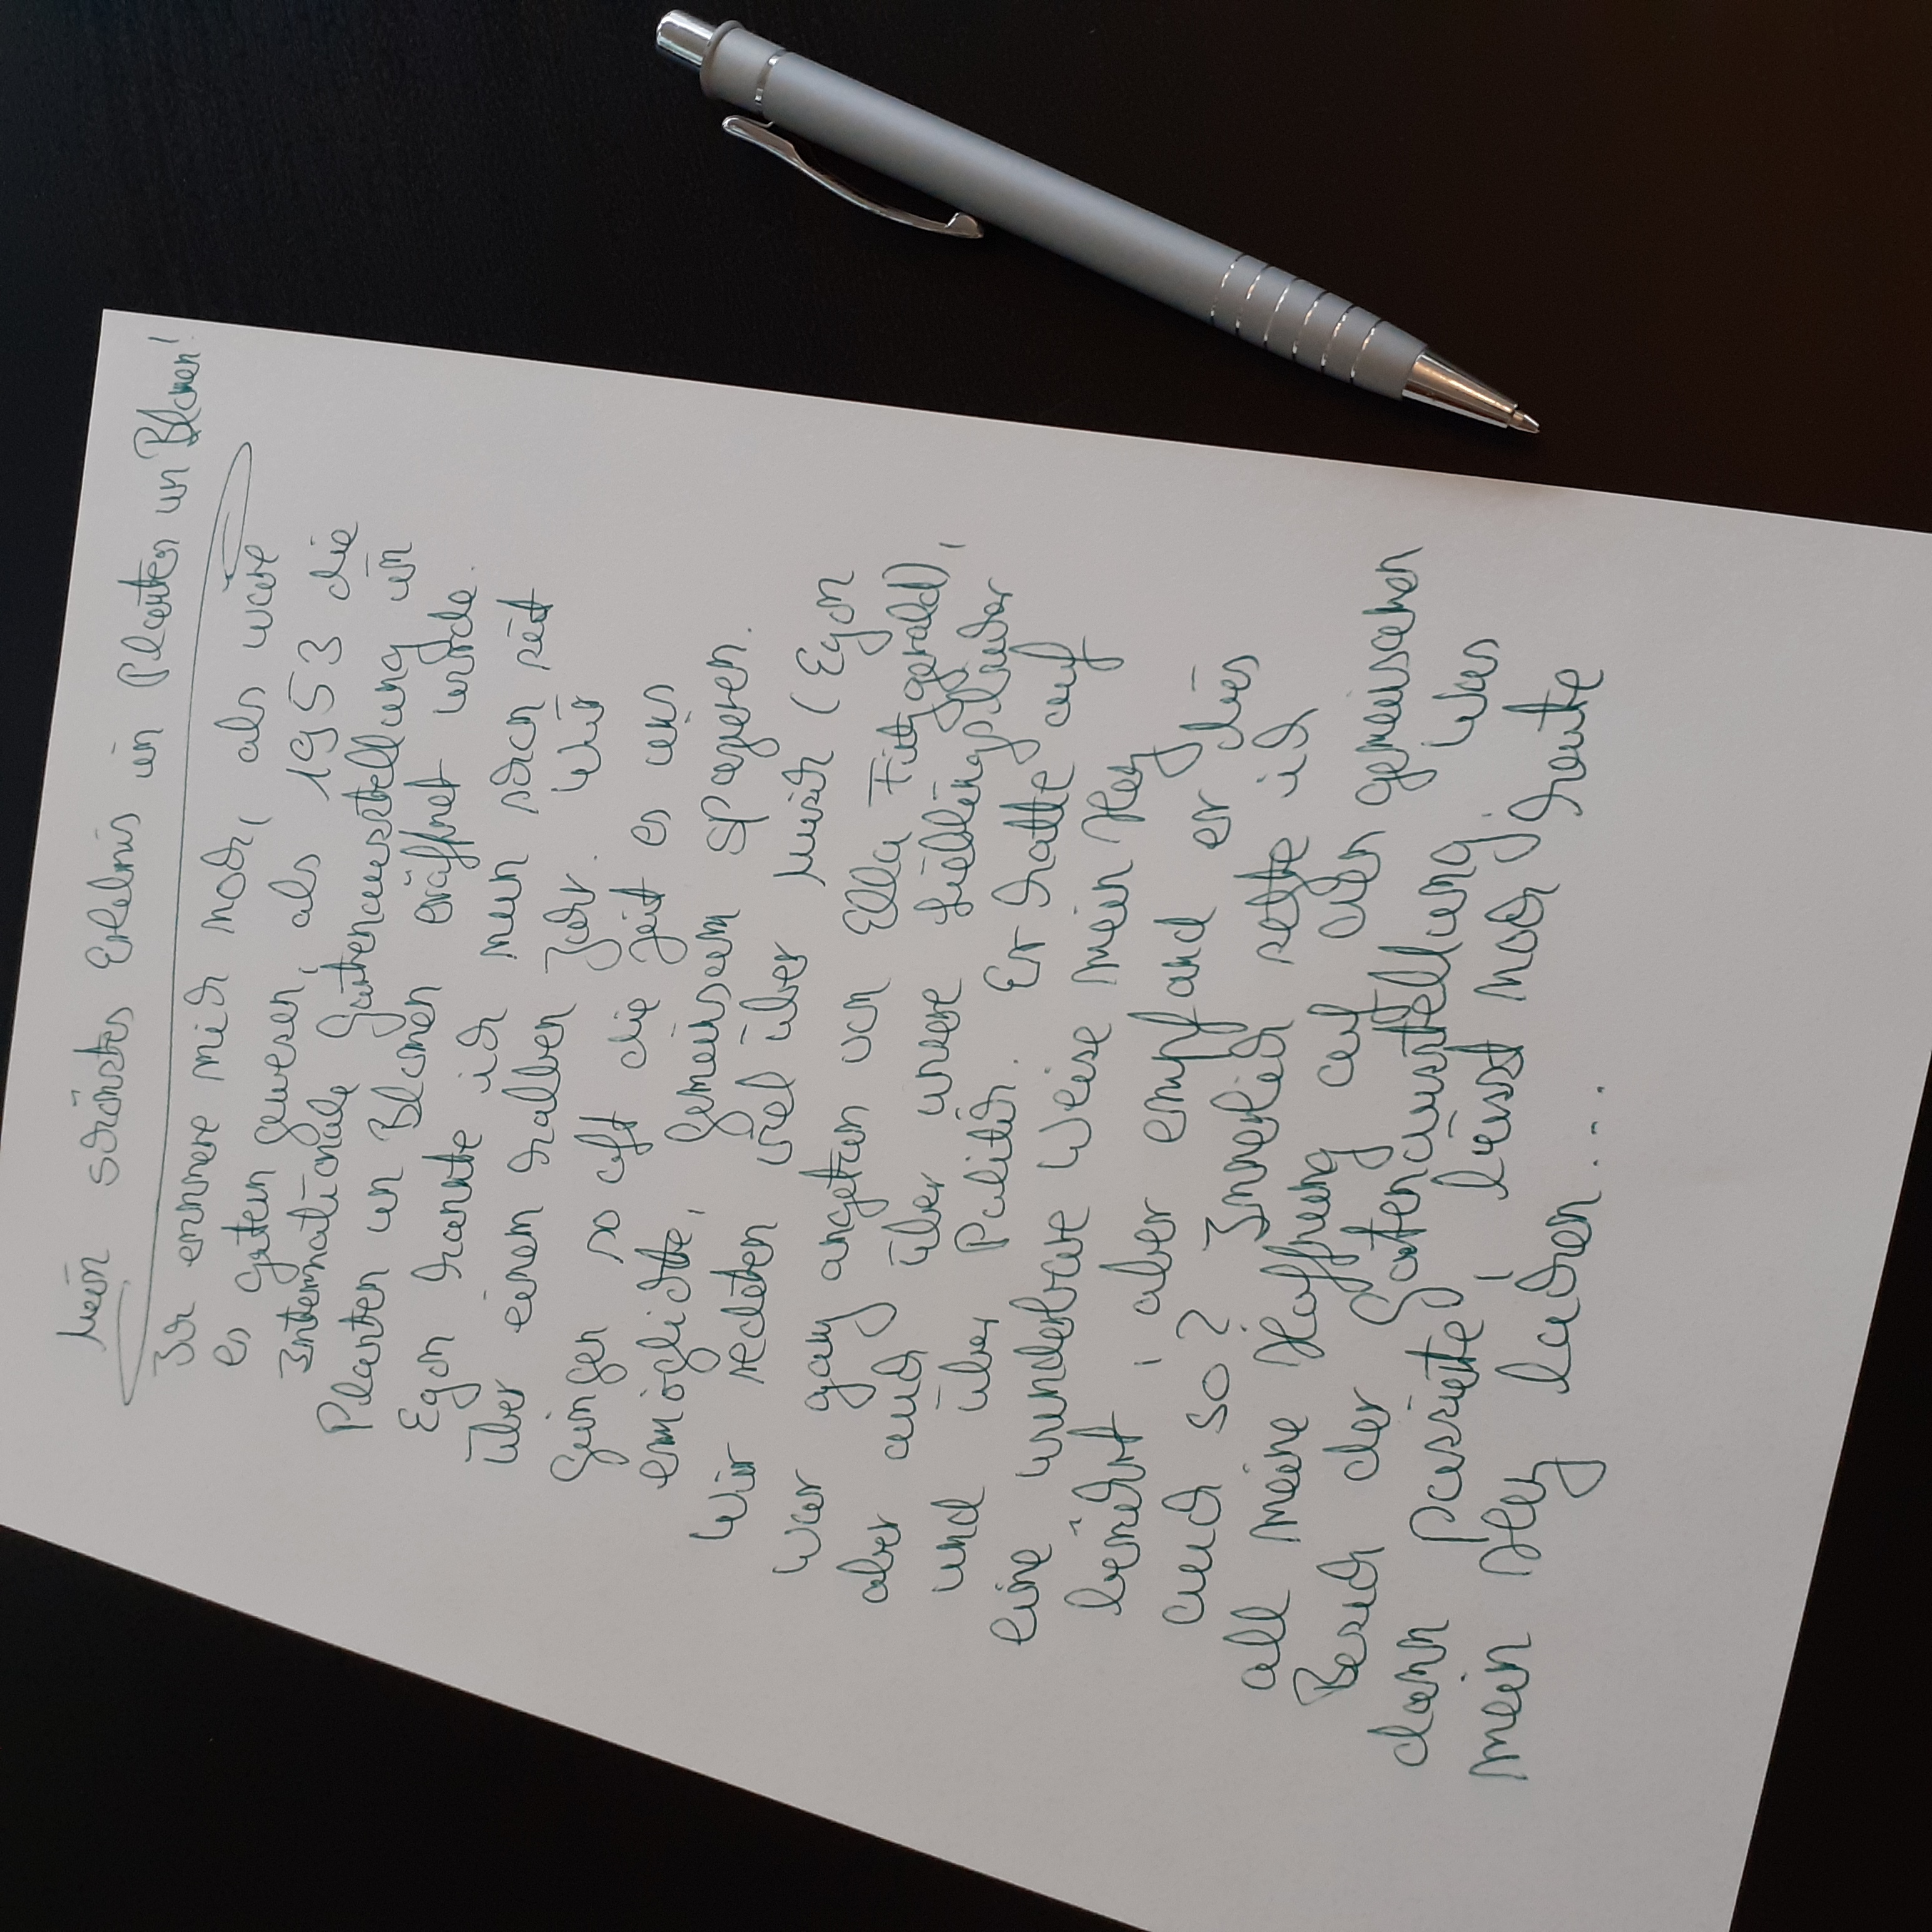 Mein schönstes Erlebnis in Planten un Blomen!
Ich erinnere mich noch, als wäre
es gestern gewesen, als 1953 die
Internationale Gartenausstellung in
Planten un Blomen eröffnet wurde.
Egon kannte ich nun schon seit
über einem halben Jahr. Wir
gingen so oft die Zeit es uns
ermöglichte, gemeinsam spazieren.
Wir redeten viel über Musik (Egon
war ganz angetan von Ella Fitzgerald),
aber auch über unsere Lieblingsbücher
und über Politik. Er hatte auf
eine wunderbare Weise mein Herz
berührt, aber empfand er dies
auch so? Innerlich setzte ich
all meine Hoffnung auf den gemeinsamen
Besuch der Gartenausstellung. Was
dann passierte, lässt noch heute
mein Herz lachen....